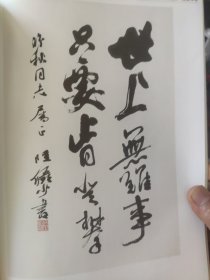 世上無難事
只要肯登攀
珍秋同志屬正
陸儼少書